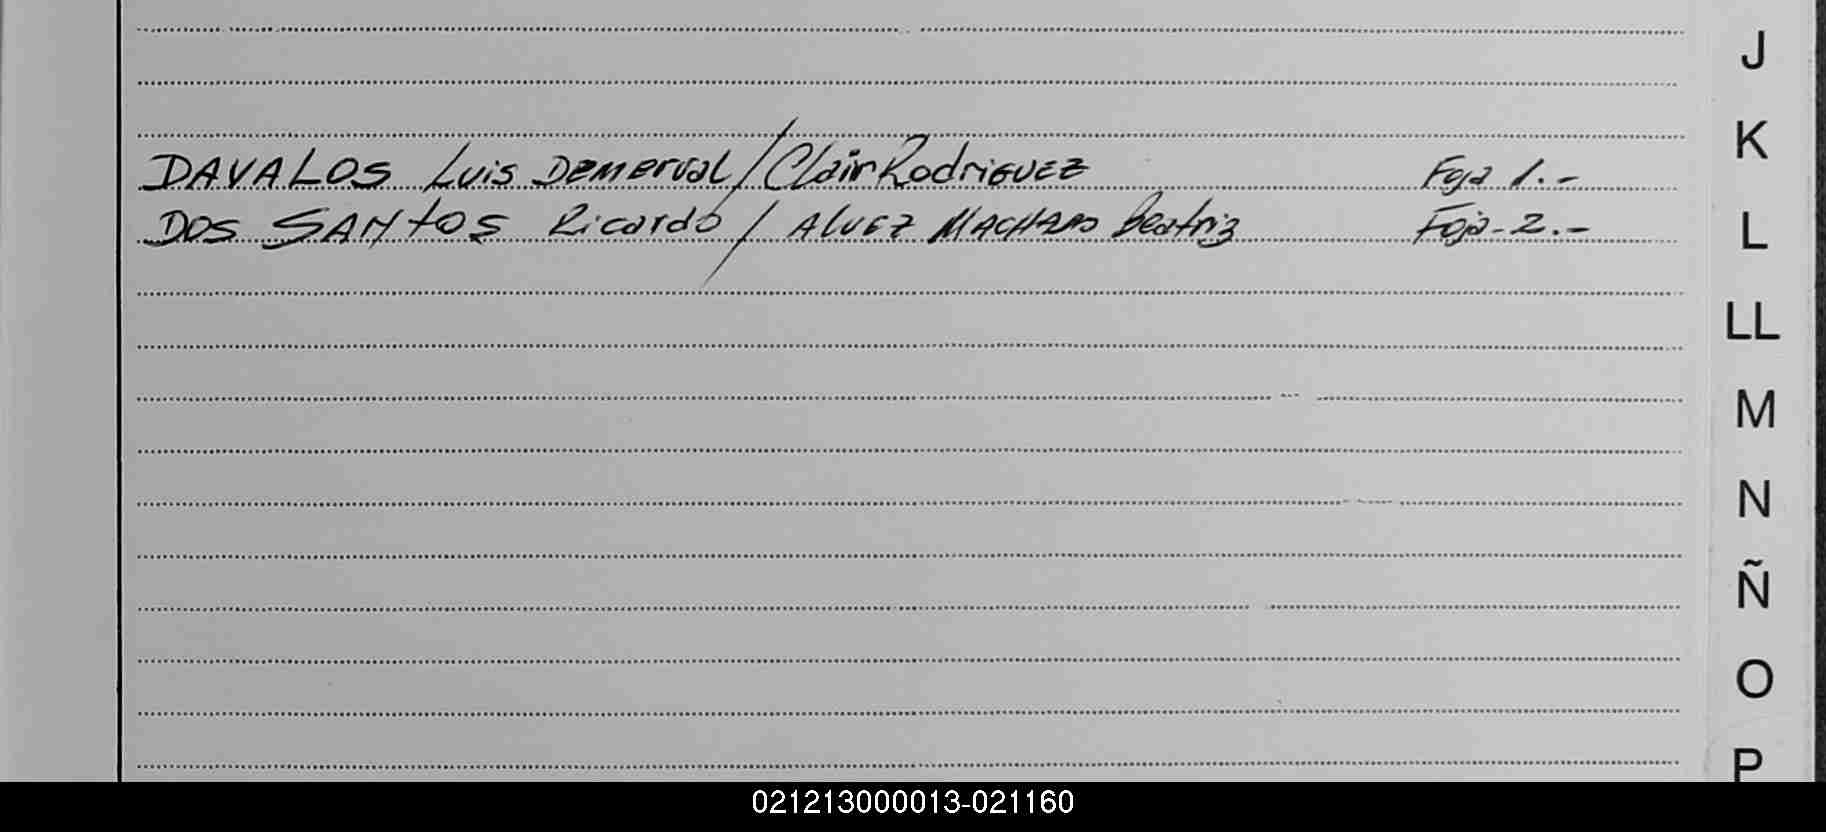 J
K
DAVALOS Luis Demerval / Clair Rodriguez Foja 1.-
DOS SANTOS Ricardo / ALVEZ MACHADO Beatriz Foja-2.-
L
LL
M
N
Ñ
O
P
021213000013-021160